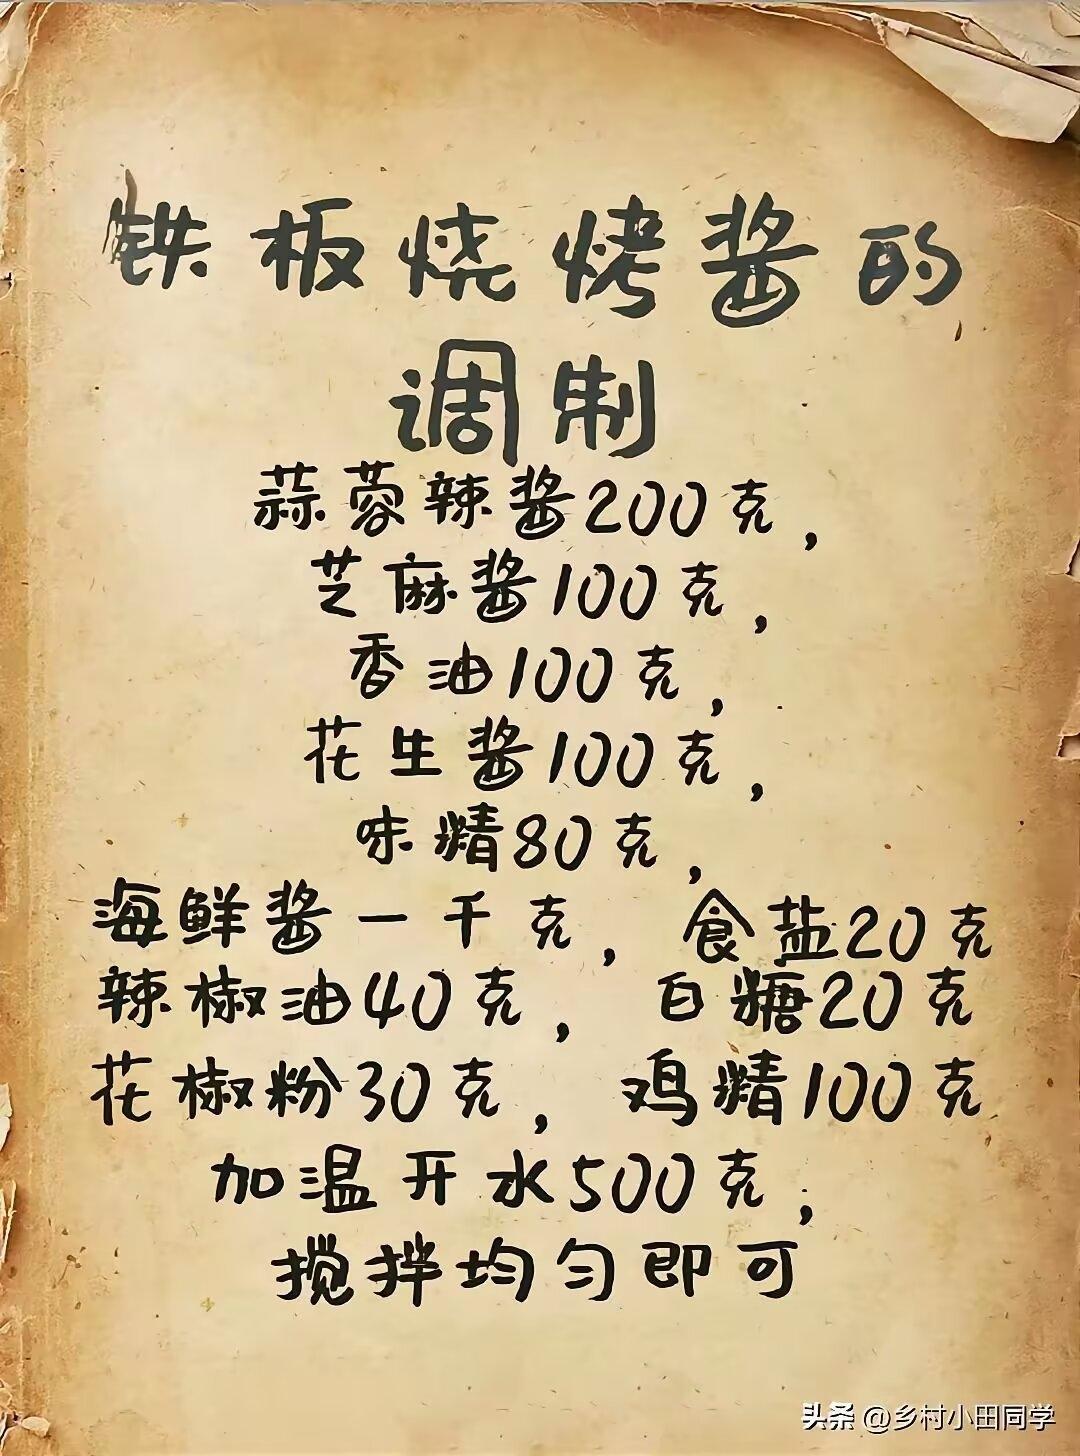 铁板烧烤酱的
调制
蒜蓉辣酱200克，
芝麻酱100克，
香油100克，
花生酱100克，
味精80克，
海鲜酱一千克，食盐20克
辣椒油40克，白糖20克
花椒粉30克，鸡精100克
加温开水500克，
搅拌均匀即可
头条 @乡村小田同学